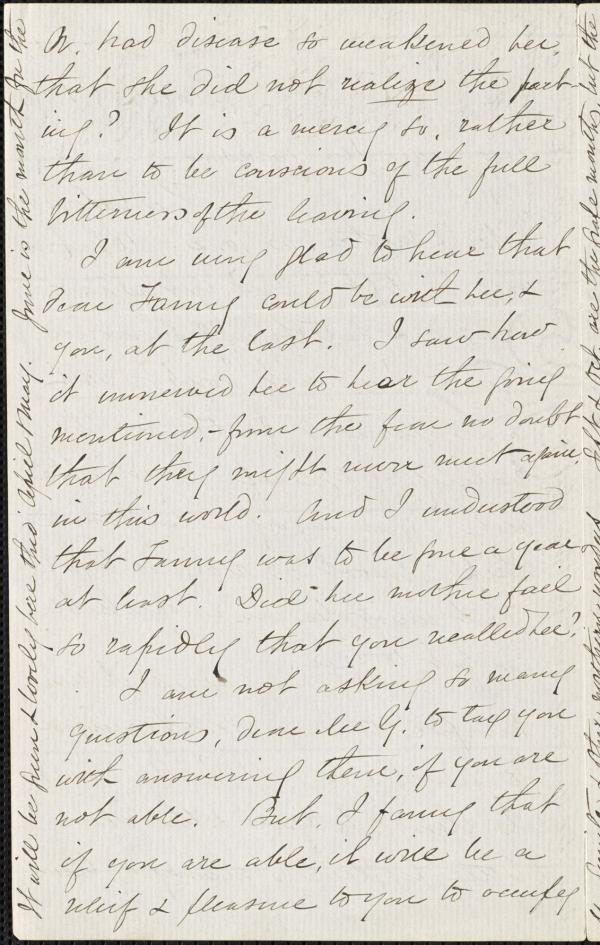 Or, had disease so weakened her,
that she did not realize the part-
ing? It is a mercy so, rather
than to be conscious of the full
bitterness of the leaving.
I am very glad to hear that
dear Fanny could be with her, &
you, at the last. I saw how
it unnerved her to hear the going
mentioned, - from the fear no doubt
that they might never meet again
in this world. And I understood
that Fanny was to be gone a year,
at least. Did her mother fail
so rapidly that you recalled her?
I am not asking so many
questions, dear Mr G. to tax you
with answering them, if you are
not able. But, I fancy that
if you are able, it will be a
relief & pleasure to you to occupy
It will be green & lovely here thro' April & May. June is the month for the
Sept & Oct. are the months, but the